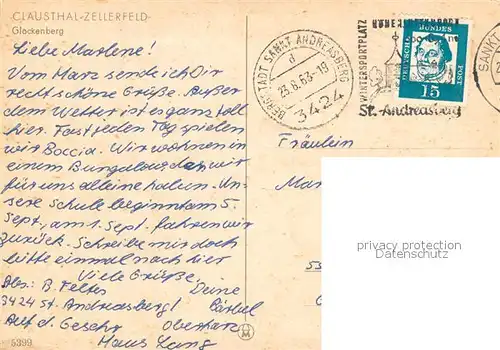 CLAUSTHAL-ZELLERFELD
Glockenberg
Liebe Marlene!
Vom Harz sende ich Dir
recht schöne Grüße. Außer
dem Wetter ist es ganz toll
hier. Fast jeden Tag spielen
wir Boccia. Wir wohnen in
einem Bungalow, den wir
für uns alleine haben. Un-
sere Schule beginnt am 5.
Sept., am 1. Sept. fahren wir
zurück. Schreibe mir doch
bitte einmal nach hier
Viele Grüße,
Deine
Bärbel
Abs: B. Feltes
3424 St. Andreasberg/
Oberharz
Auf d. Gesehr
Haus Lang
5399
BERGSTADT SANKT ANDREASBERG
d
23.8.63-19
3424
WINTERSPORTPLATZ
St. Andreasberg
DEUTSCHE BUNDESPOST
15
SANKT
Fräulein
Mar
privacy protection
watermark
53